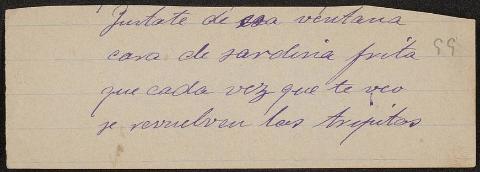 Justate de esa ventana
cara de sardina frita
que cada vez que te veo
se revuelven las tripitas
99